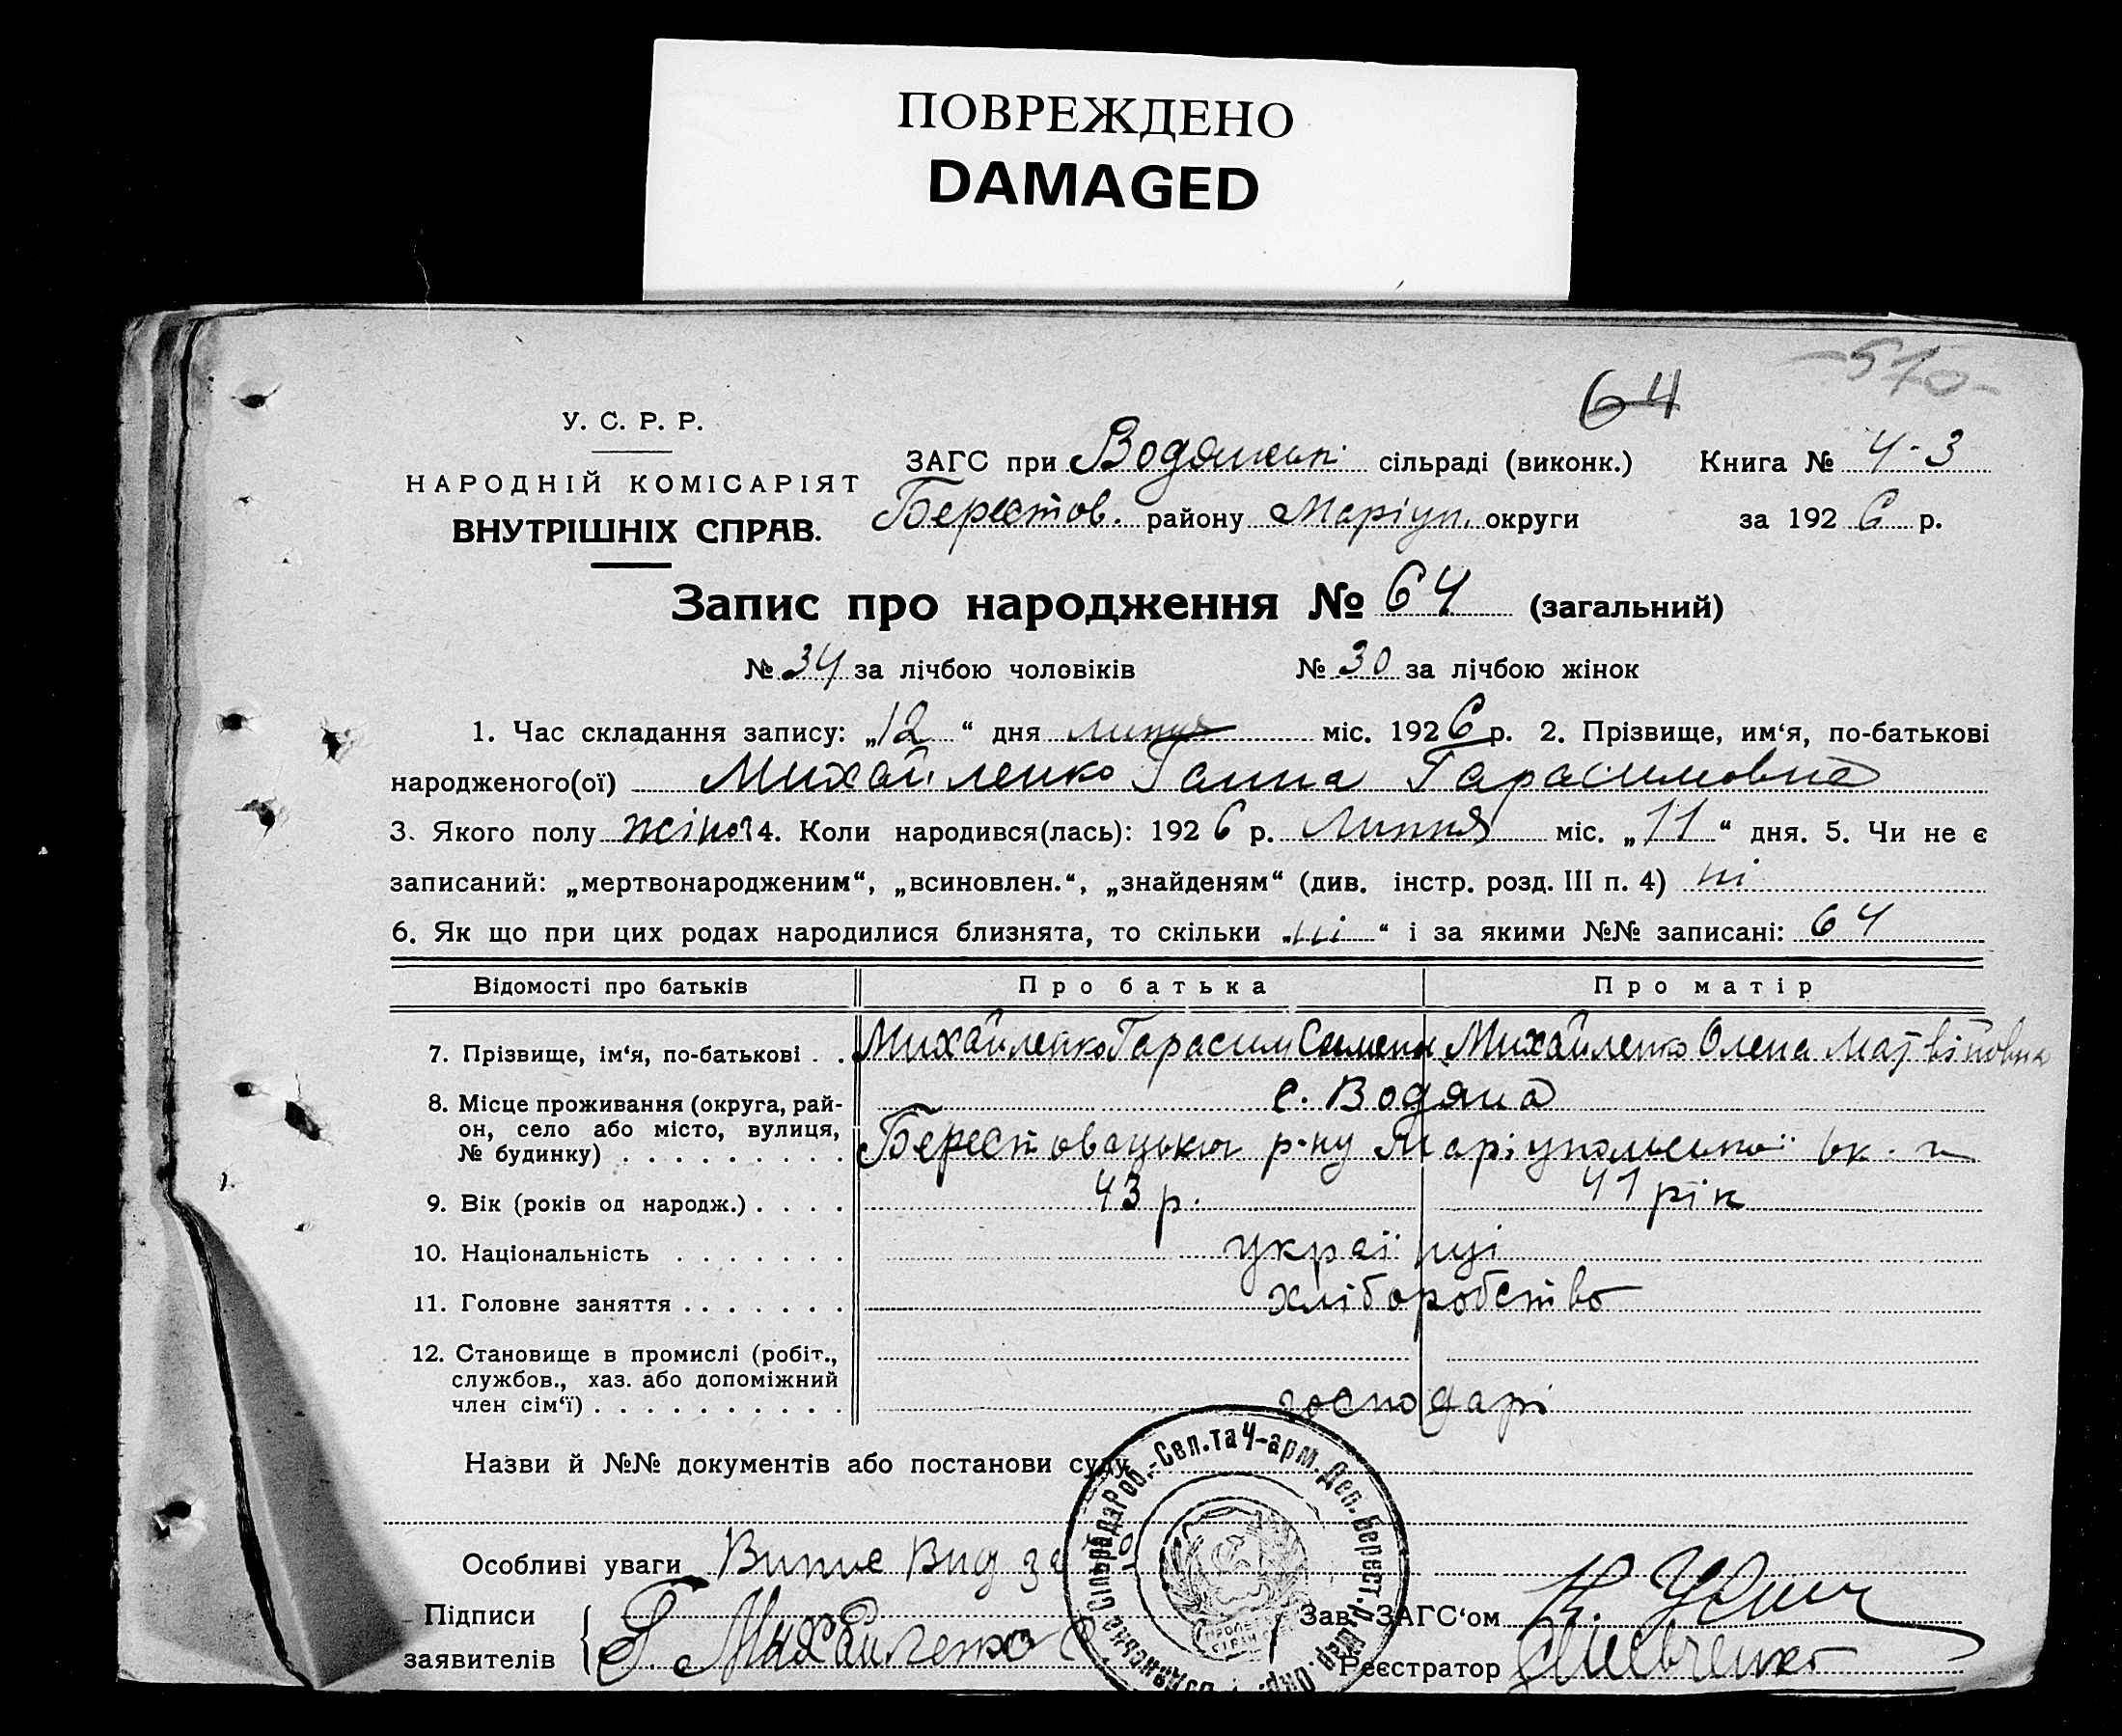 ПОВРЕЖДЕНО
DAMAGED
-570-
64
У. С. Р. Р.
НАРОДНІЙ КОМІСАРІЯТ
ВНУТРІШНІХ СПРАВ.
ЗАГС при Водянськ. сільраді (виконк.) Книга № 4-3
Берестов. району Маріуп. округи за 1926 р.
Запис про народження № 64 (загальний)
№ 34 за лічбою чоловіків № 30 за лічбою жінок
1. Час складання запису: „12“ дня липня міс. 1926 р. 2. Прізвище, им‘я, по-батькові
народженого(ої) Михайленко Ганна Гарасимовна
3. Якого полу жіноч 4. Коли народився(лась): 1926 р. Липня міс. „11“ дня. 5. Чи не є
записаний: „мертвонародженим“, „всиновлен.“, „знайденям“ (див. інстр. розд. III п. 4) ні
6. Як що при цих родах народилися близнята, то скільки „ні“ і за якими №№ записані: 64
Відомості про батьків Про батька Про матір
7. Прізвище, ім‘я, по-батькові . . Михайленко Гарасим Семен Михайленко Олена Матвіповна
8. Місце проживання (округа, рай- с. Водяна
он, село або місто, вулиця,
№ будинку) . . . . . . . . . Берестовацького р-ну Маріупольської ок.
9. Вік (років од народж.) . . . . 43 р. 41 рік
10. Національність . . . . . . . українці
11. Головне заняття . . . . . . . хліборобство
12. Становище в промислі (робіт.,
службов., хаз. або допоміжний
член сім‘ї) . . . . . . . . . . господарі
Назви й №№ документів або постанови суду
Особливі уваги Випис Вид за
Підписи Зав. ЗАГС‘ом
заявителів Г. Михайленко Реєстратор Шевченко
Сільрада Роб.-Сел. та Ч-арм. Деп. Берест. р.